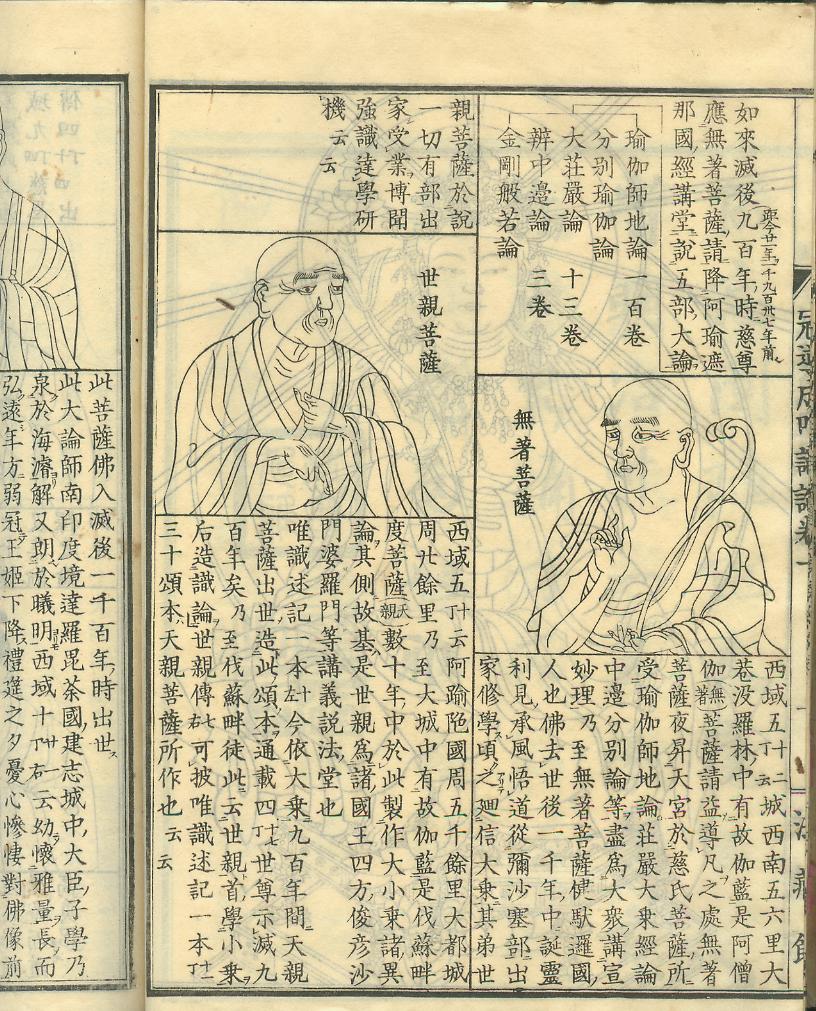 如來滅後九百年時慈尊
距今廿一年千九百卅七年前
應無著菩薩請降阿瑜遮
那國經講堂說五部大論
瑜伽師地論一百卷
分别瑜伽論
大莊嚴論 十三卷
辨中邊論 三卷
金剛般若論
無著菩薩
西域五十二丁云城西南五六里大
菴没羅林中有故伽藍是阿僧
伽無著菩薩請益導凡之處無著
菩薩夜昇天宮於慈氏菩薩所
受瑜伽師地論莊嚴大乘經論
中邊分别論等盡爲大衆講宣
妙理乃至無著菩薩健馱邏國
人也佛去世後一千年中誕靈
利見承風悟道從彌沙塞部出
家修學頃之廻信大乘其弟世
親菩薩於說
一切有部出
家受業博聞
強識達學研
機云云
世親菩薩
西域五丁云阿踰陁國周五千餘里大都城
周廿餘里乃至大城中有故伽藍是伐蘇畔
度菩薩天親數十年中於此製作大小乘諸異
論其側故基是世親爲諸國王四方俊彦沙
門婆羅門等講義説法堂也
唯識述記一本左十今依大乘九百年間天親
菩薩出世造此頌本通載四丁七世尊示滅九
百年矣乃至伐蘇畔徒此云世親首學小乘
后造識論世親傳右七可披唯識述記一本十一丁
三十頌本天親菩薩所作也云云
此菩薩佛入滅後一千百年時出世
此大論師南印度境達羅毘荼國建志城中大臣子學乃
泉於海濬解又朗於曦明西域十廿丁右一云幼懷雅量長而
弘遠年方弱冠王姬下降禮筵之夕憂心慘悽對佛像前